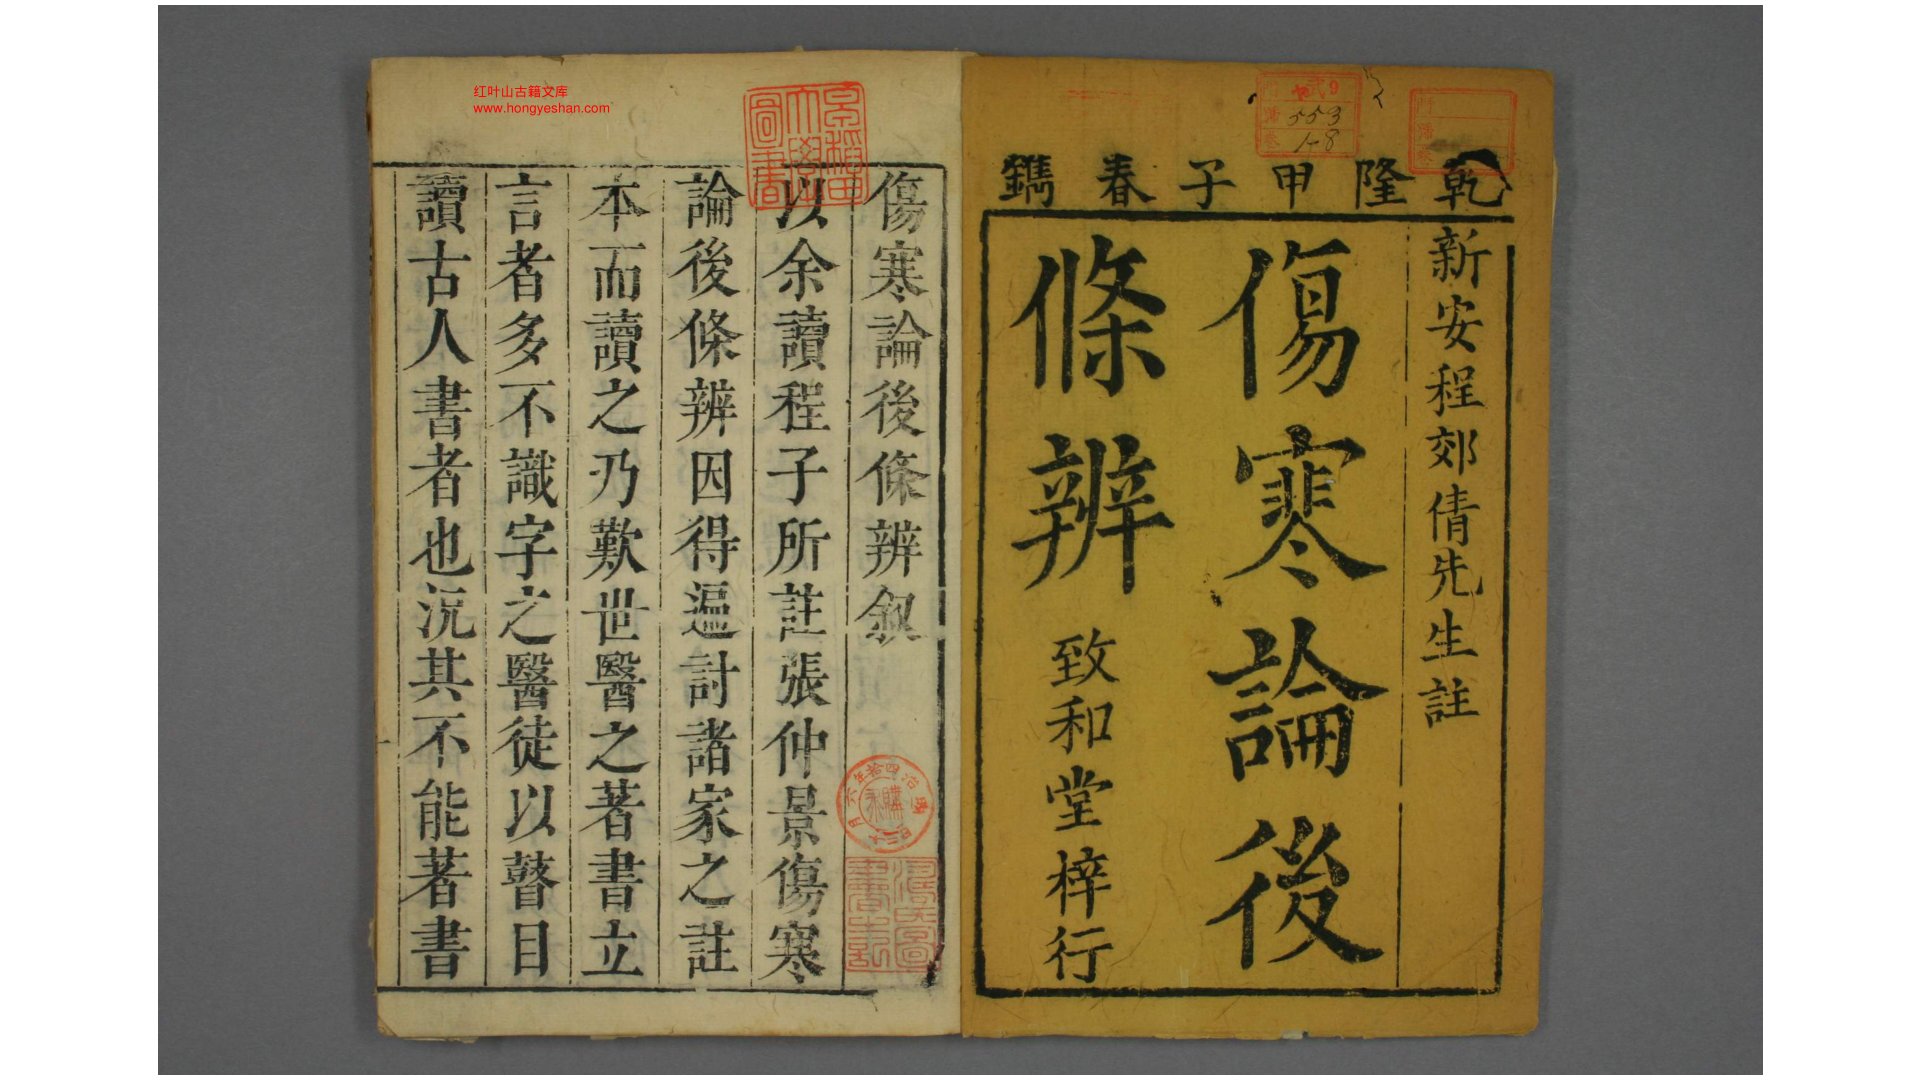 乾隆甲子春鐫
新安程郊倩先生註
傷寒論後
條辨
致和堂梓行
武9
553
1-8
傷寒論後條辨叙
以余讀程子所註張仲景傷寒
論後條辨因得遍討諸家之註
本而讀之乃歎世醫之著書立
言者多不識字之醫徒以瞽目
讀古人書者也況其不能著書
早稻田大學圖書
明治四拾年六月二十四日
購求
红叶山古籍文库
www.hongyeshan.com